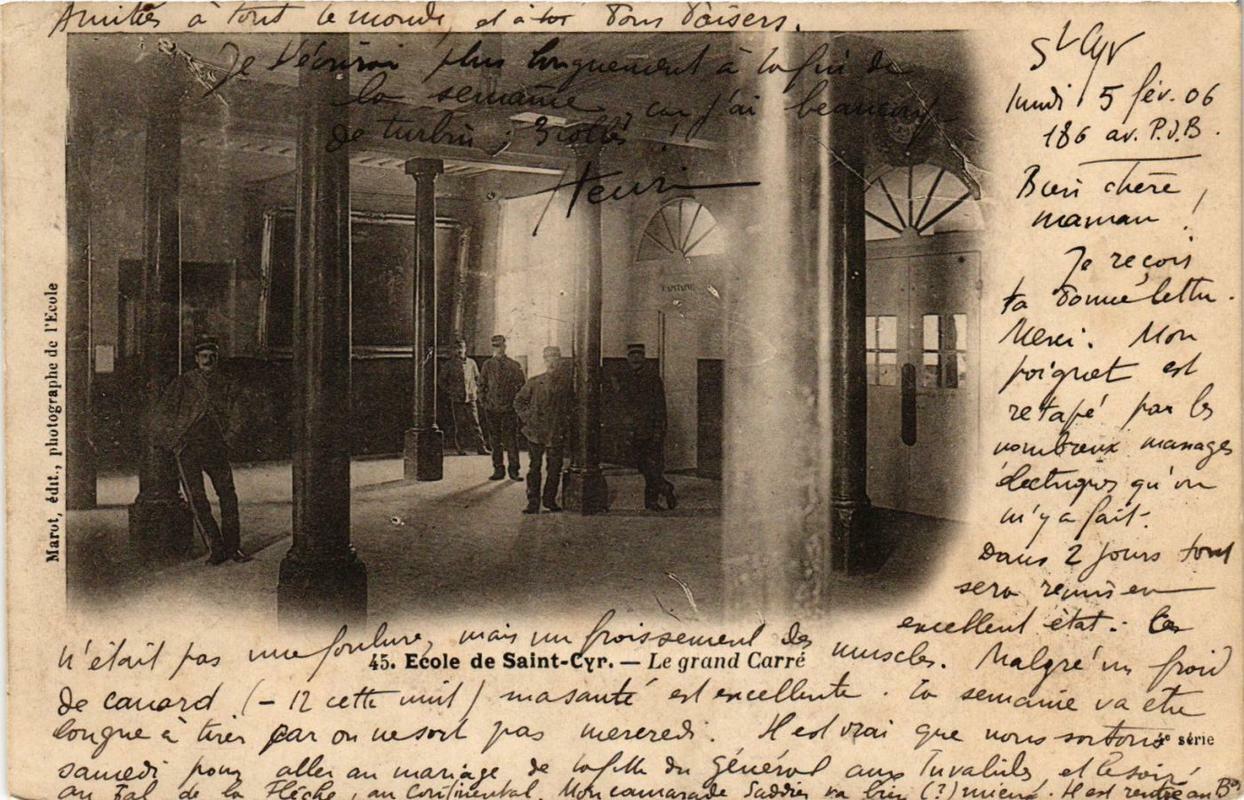 St Cyr
lundi 5 fév. 06
186 av. P.d.B.
Bien chère
maman !
Je reçois
ta bonne lettre.
Merci. Mon
poignet est
retapé par les
nombreux massages
électriques qu'on
m'y a fait.
Dans 2 jours tout
sera remis en
excellent état : Ce
n'était pas une foulure, mais un froissement des muscles. Malgré un froid
de canard (- 12 cette nuit) ma santé est excellente. La semaine va être
longue à tirer car on ne sort pas mercredi. Il est vrai que nous sortons
samedi pour aller au mariage de la fille du Général aux Invalides, et le soir
au Bal de la Flèche, au Continental. Mon camarade va bien (?) mieux. Il est rentré au
Amitiés à tout le monde, et à toi bons baisers.
Je t'écrirai plus longuement à la fin de
la semaine, car j'ai beaucoup
de turbin.
Henri
VANTINE
Marot, édit., photographe de l'Ecole
45. Ecole de Saint-Cyr. — Le grand Carré
4e série